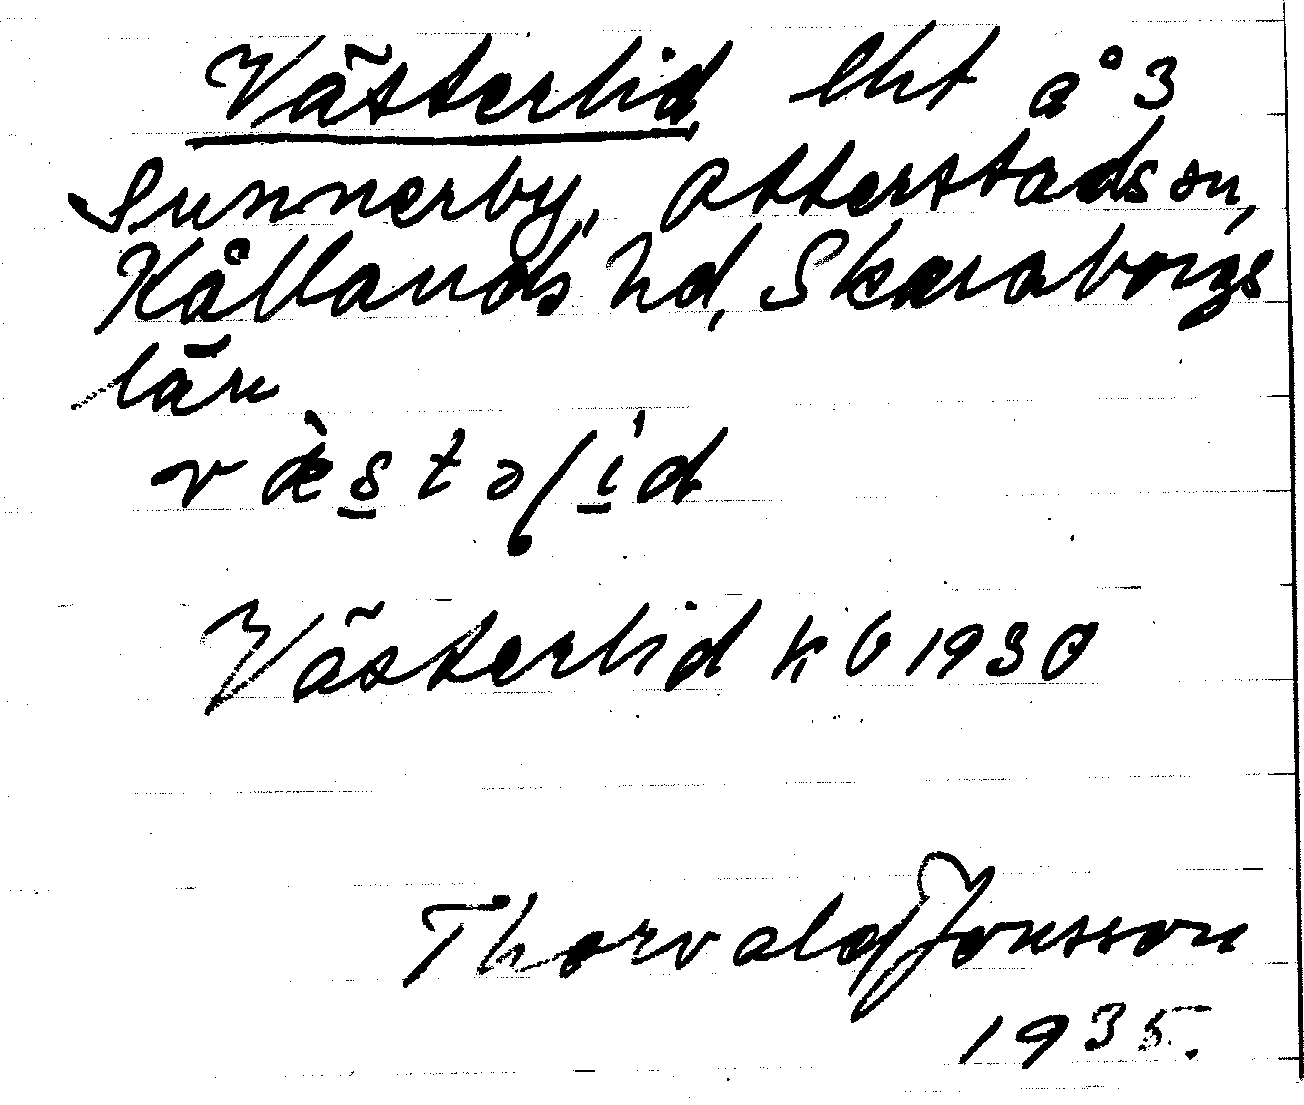 Västerlid, lht å 3
Sunnerby, Otterstads sn,
Kållands hd, Skaraborgs
län
væ̀stəlid
Västerlid kb 1930
Thorvald Jonsson
1935.